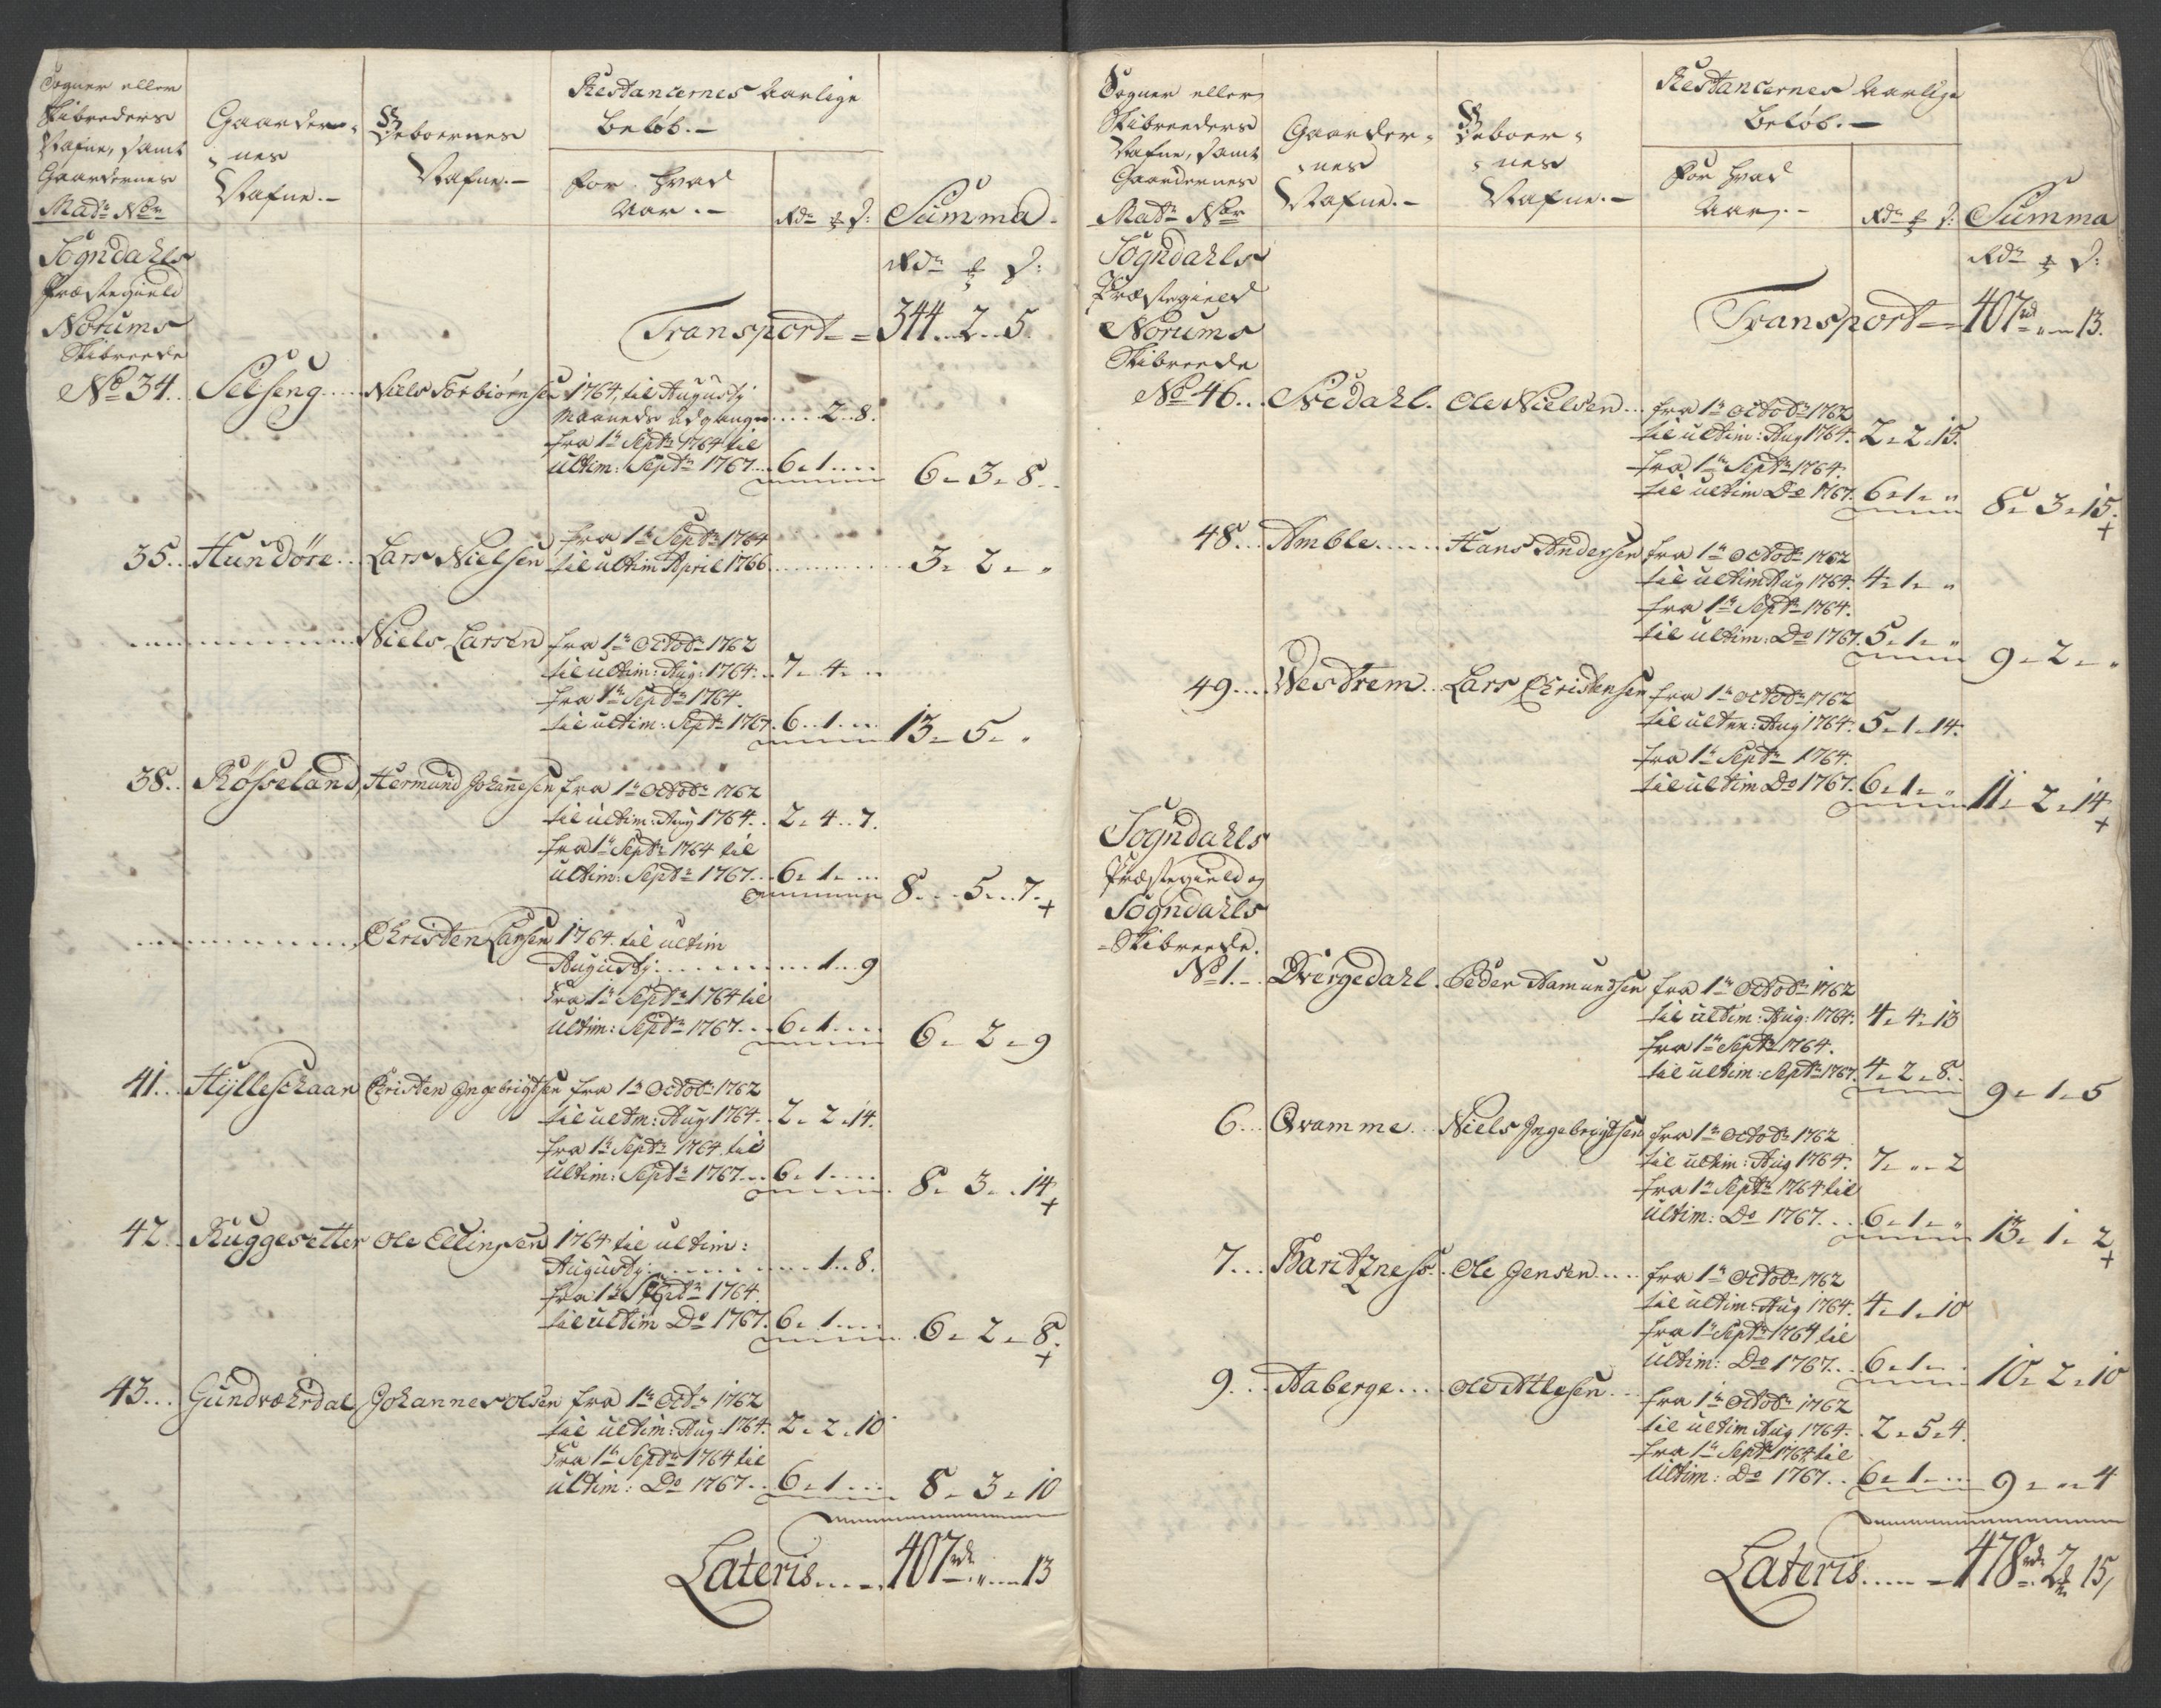 Sogner eller
Skibreeders
Nafne, samt
Gaardernes
Matr Nor
Gaarder-
nes
Nafne.-
Beboernes
Nafne.-
Restancernes Aarlige
Beløb.-
for hvad
Aar.-
Rdr ₰ s:
Summa
Rdr ₰ s:
Sogndahls
Præstegield
Norums
Skibreede
Transport = 344..2..5.
No 34. Selseng.... Niels Torbiörnsen 1764, til Augustj
Maaneds udgang..... 2..8.
fra 1te Septr 1764 til
ultim: Septr 1767... 6. 1.... 6 - 3 - 8.
35.. Hundöre... Lars Nielsen fra 1te Septr 1764
til ultim April 1766............ 3 - 2 - "
Niels Larsen fra 1te Octobr 1762
til ultim: Aug: 1764. 7 - 4 - "
fra 1te Septr 1764.
til ultim: Septr 1767. 6..1.... 13 - 5 - "
38.. Rösseland, Hermund Johannesen fra 1te Octobr 1762
til ultim: Aug 1764. 2 - 4..7.
fra 1te Septr 1764 til
ultim: Septr 1767... 6 - 1.... 8...5...7. +
Christen Larsen 1764. til ultim
Augustj............ 1..9
fra 1te Septr 1764 til
ultim: Septr 1767... 6 - 1.... 6 - 2 - 9
41... Hylleschaar Christen Ingebrigtsen fra 1te Octobr 1762
til ultm: Aug 1764. 2 - 2.14.
fra 1te Septr 1764 til
ultim: Septr 1767... 6 - 1.... 8 - 3..14 +
42.. Ruggesetter Ole Ellingsen 1764 til ultim:
Augustj:............ 1..8.
fra 1te Septr 1764.
til ultim Do 1767. 6 - 1.... 6 - 2 - 8. +
43... Gundvæhrdal Johannes Olsen fra 1te Octr 1762
til ultim: Aug 1764. 2 - 2.10
fra 1te Septr 1764 til
ultim: Do 1767.. 6 - 1.... 8 - 3 - 10
Lateris..... 407rd " 13
Sogner eller
Skibreeders
Nafne, samt
Gaardernes
Matr Nor
Gaarder-
nes
Nafne.-
Beboer-
nes
Nafne.-
Restancernes Aarlige
Beløb.-
for hvad
Aar.-
Rdr ₰ s:
Summa
Rdr ₰ s:
Sogndahls
Præstegield
Norums
Skibreede
Transport = 407rd " 13.
No 46... Nedahl. Ole Nielsen... fra 1te Octobr 1762
til ultim: Aug 1764. 2 - 2.15.
fra 1te Septr 1764.
til ultim Do 1767. 6 - 1 - " 8 - 3 - 15. +
48... Amble...... Hans Andersen fra 1te Octobr 1762
til ultim Aug 1764. 4 - 1 - "
fra 1te Septr 1764.
til ultim: Do 1767. 5 - 1 - " 9 - 2 - "
49.... Westrem.. Lars Christensen fra 1te Octobr 1762
til ultm: Aug 1764. 5 - 1 - 14.
fra 1te Septr 1764.
til ultim Do 1767. 6 - 1 - " 11 - 2 - 14 +
Sogndahls
Præstegield og
Sogndahls
Skibreede.
No 1. - Dvergedahl. Peder Aamundsen fra 1te Octobr 1762
til ultim: Aug: 1764. 4 - 4 - 13
fra 1te Septr 1764.
til ultim: Septr 1767. 4 - 2 - 8. 9 - 1 - 5
6... Qvamme... Niels Ingebrigtsen fra 1te Octobr 1762
til ultim: Aug 1764. 7 - " - 2
fra 1te Septr 1764 til
ultim: Do 1767... 6 - 1 - " 13 - 1 - 2 +
7... Baritzness. Ole Jensen.... fra 1te Octobr 1762
til ultim: Aug 1764. 4 - 1 - 10
fra 1te Septr 1764 til
ultim: Do 1767.. 6 - 1 - . 10 - 2 - 10
9... Aaberge.... Ole Atlesen... fra 1te Octobr 1762
til ultim Aug 1764. 2 - 5 - 4.
fra 1te Septr 1764 til
ultim: Do 1767.. 6 - 1.... 9 - " - 4
Lateris..... 478rd 2₰ 15,